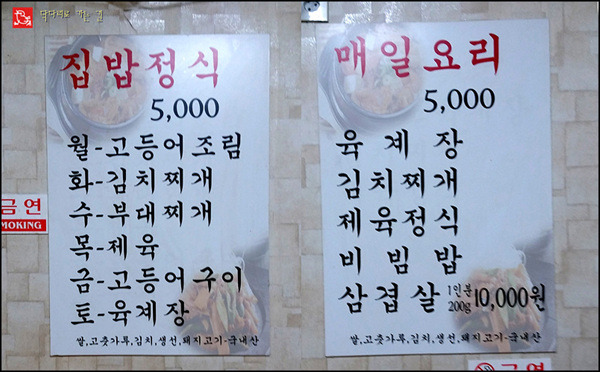 집밥정식
5,000
월-고등어조림
화-김치찌개
수-부대찌개
목-제육
금-고등어구이
토-육계장
쌀,고춧가루,김치,생선,돼지고기-국내산
매일요리
5,000
육계장
김치찌개
제육정식
비빔밥
삼겹살 1인분 200g 10,000원
쌀,고춧가루,김치,생선,돼지고기-국내산
금연
MOKING
금연